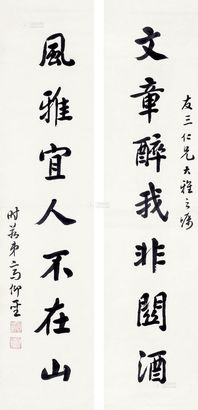 友三仁兄大雅之属
文章醉我非關酒
風雅宜人不在山
時弟馮仰堂